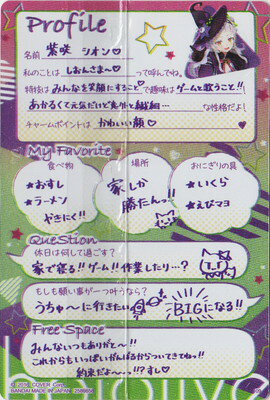 Profile
名前 紫咲 シオン♡
私のことは しおんさま〜♡ って呼んでね。
特技は みんなを笑顔にすること♡ で趣味は ゲームと歌うこと!!
あかるくて元気だけど意外と繊細… な性格だよ!
チャームポイントは かわいい顔♡
My Favorite
食べ物
★おすし
★ラーメン
やきにく!!
場所
家しか
勝たんっ!!
おにぎりの具
★いくら
★えびマヨ
QueStion
休日は何して過ごす?
家で寝る!! ゲーム!! 作業したり…?
もしも願い事が一つ叶うなら?
うちゅ〜に行きたい
BIGになる!!
Free Space
みんないつもありがと〜!!
これからもいっぱいがんばるからついてきてねっ!!
約束だよ〜…!? すし!
© 2016 COVER Corp.
BANDAI MADE IN JAPAN
hololive